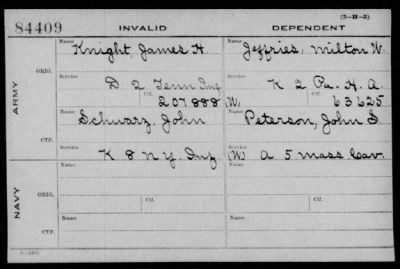 (3-H-5)
84409 INVALID DEPENDENT
Name Knight, James H. Name Jeffries, Milton W.
ARMY ORIG. Service D 2 Tenn Inf. Service K 2 Pa. H. A.
Ctf. 207888 (W) Ctf. 63625
Name Schwarz, John Name Peterson, John S
CTF. Service K 8 N Y. Inf Service (W) A 5 Mass Cav.
NAVY ORIG. Name Ctf. Name Ctf.
CTF. Name Name